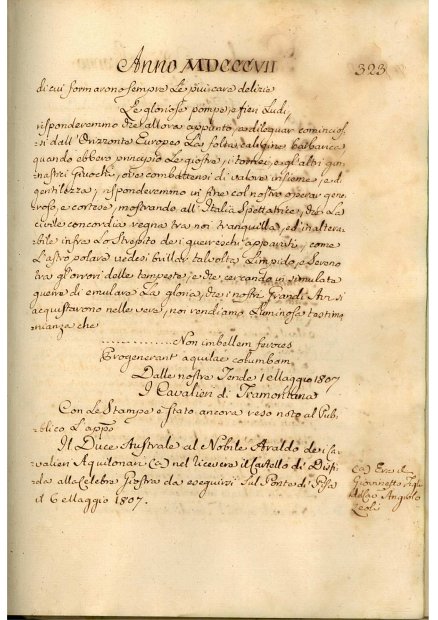 Anno MDCCCVII
323
di cui formarono sempre le piu care delizie
Le gloriose pompe, e i fieri Ludi,
risponderemmo che allora appunto a dileguar cominciossi
dall' Orizzonte Europeo la folta caligine barbarica
quando ebbero principio le giostre, i tornei, e gli altri gin-
nastici giuochi, ove combattevasi di valore insieme, e di
gentilezza, risponderemmo in fine col nostro operar gene-
roso, e cortese, mostrando all' Italia Spettatrice, che la
civile concordia regna tra noi tranquilla, ed inaltera-
bile infra lo strepito dei guerreschi apparati, come
l'astro polare vedesi brillar talvolta limpido, e sereno
tra gl'orrori delle tempeste, e che cercando in simulata
guerra di emulare la gloria, che i nostri Grandi Avi si
acquistarono nelle vere, noi rendiamo luminosa testimo-
nianza che
............ Non imbellem feroces
Progenerant aquilae columbam
Dalle nostre Tende 1 Maggio 1807
I Cavalieri di Tramontana
Con le Stampe è stato ancora reso noto al Pub-
blico l' appo
Il Duce Australe al Nobile Araldo dei Ca-
valieri Aquilonari (a) nel ricevere il Cartello di Disfi-
da alla Celebre Giostra da eseguirsi sul Ponte di Pisa
il 6 Maggio 1807.
(a) Era il
Giovinetto Figlio
del Cav. Angiolo
Leoli